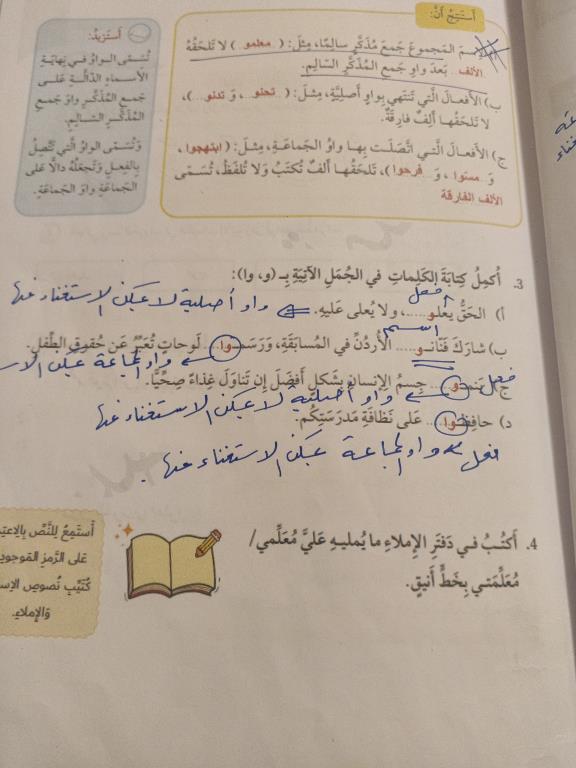 أَسْتَنْتِجُ أَنَّ:
الاسمَ المَجموعَ جَمعَ مُذَكَّرٍ سالِمًا، مِثلَ: ( معلمو ) لا تَلحَقُهُ
الألف بَعدَ واوِ جَمعِ المُذَكَّرِ السّالِمِ.
ب) الأَفعالَ الَّتي تَنتَهي بِواوٍ أَصلِيَّةٍ، مِثلَ: ( تحلو ، وَ تدنو )،
لا تَلحَقُها أَلِفٌ فارِقَةٌ.
ج) الأَفعالَ الَّتي اتَّصَلَت بِها واوُ الجَماعَةِ، مِثلَ: ( ابتهجوا ،
وَ ، وَ فرحوا )، تَلحَقُها أَلفٌ تُكتَبُ وَلا تُلفَظُ، تُسَمّى
الألف الفارقة
أَسْتَزيدُ:
تُسَمّى الواوُ في نِهايَةِ
الأَسماءِ الدّالَّةِ عَلى
جَمعِ المُذَكَّرِ واوَ جَمعِ
المُذَكَّرِ السّالِمِ.
وَتُسَمّى الواوُ الَّتي تَتَّصِلُ
بِالفِعلِ وَتَجعَلُهُ دالًّا عَلى
الجَماعَةِ واوَ الجَماعَةِ.
3. أُكمِلُ كِتابَةَ الكَلِماتِ في الجُمَلِ الآتِيَةِ بِـ (و، وا):
فعل
أ) الحَقُّ يَعْلو، ولا يُعلى عَليهِ. واو أصلية لا يمكن الاستغناء عنها
اسم
ب) شارَكَ فَنّانو الأُردُنِّ في المُسابَقَةِ، وَرَسَموا لَوحاتٍ تُعَبِّرُ عَن حُقوقِ الطِّفلِ.
واو الجماعة يمكن الاس
فعل
ج) يَنمو جِسمُ الإِنسانِ بِشَكلٍ أَفضَلَ إِن تَناوَلَ غِذاءً صِحِّيًّا.
واو أصلية لا يمكن الاستغناء عنها
د) حافِظوا عَلى نَظافَةِ مَدرَسَتِكُم.
فعل واو الجماعة يمكن الاستغناء عنها .
4. أَكتُبُ في دَفتَرِ الإِملاءِ ما يُمليهِ عَلَيَّ مُعَلِّمي/
مُعَلِّمَتي بِخَطٍّ أَنيقٍ.
أَستَمِعُ لِلنَّصِّ بِالاعتِ
عَلى الرَّمزِ المَوجودِ
كُتَيِّبِ نُصوصِ الاس
وَالإِملاءِ.